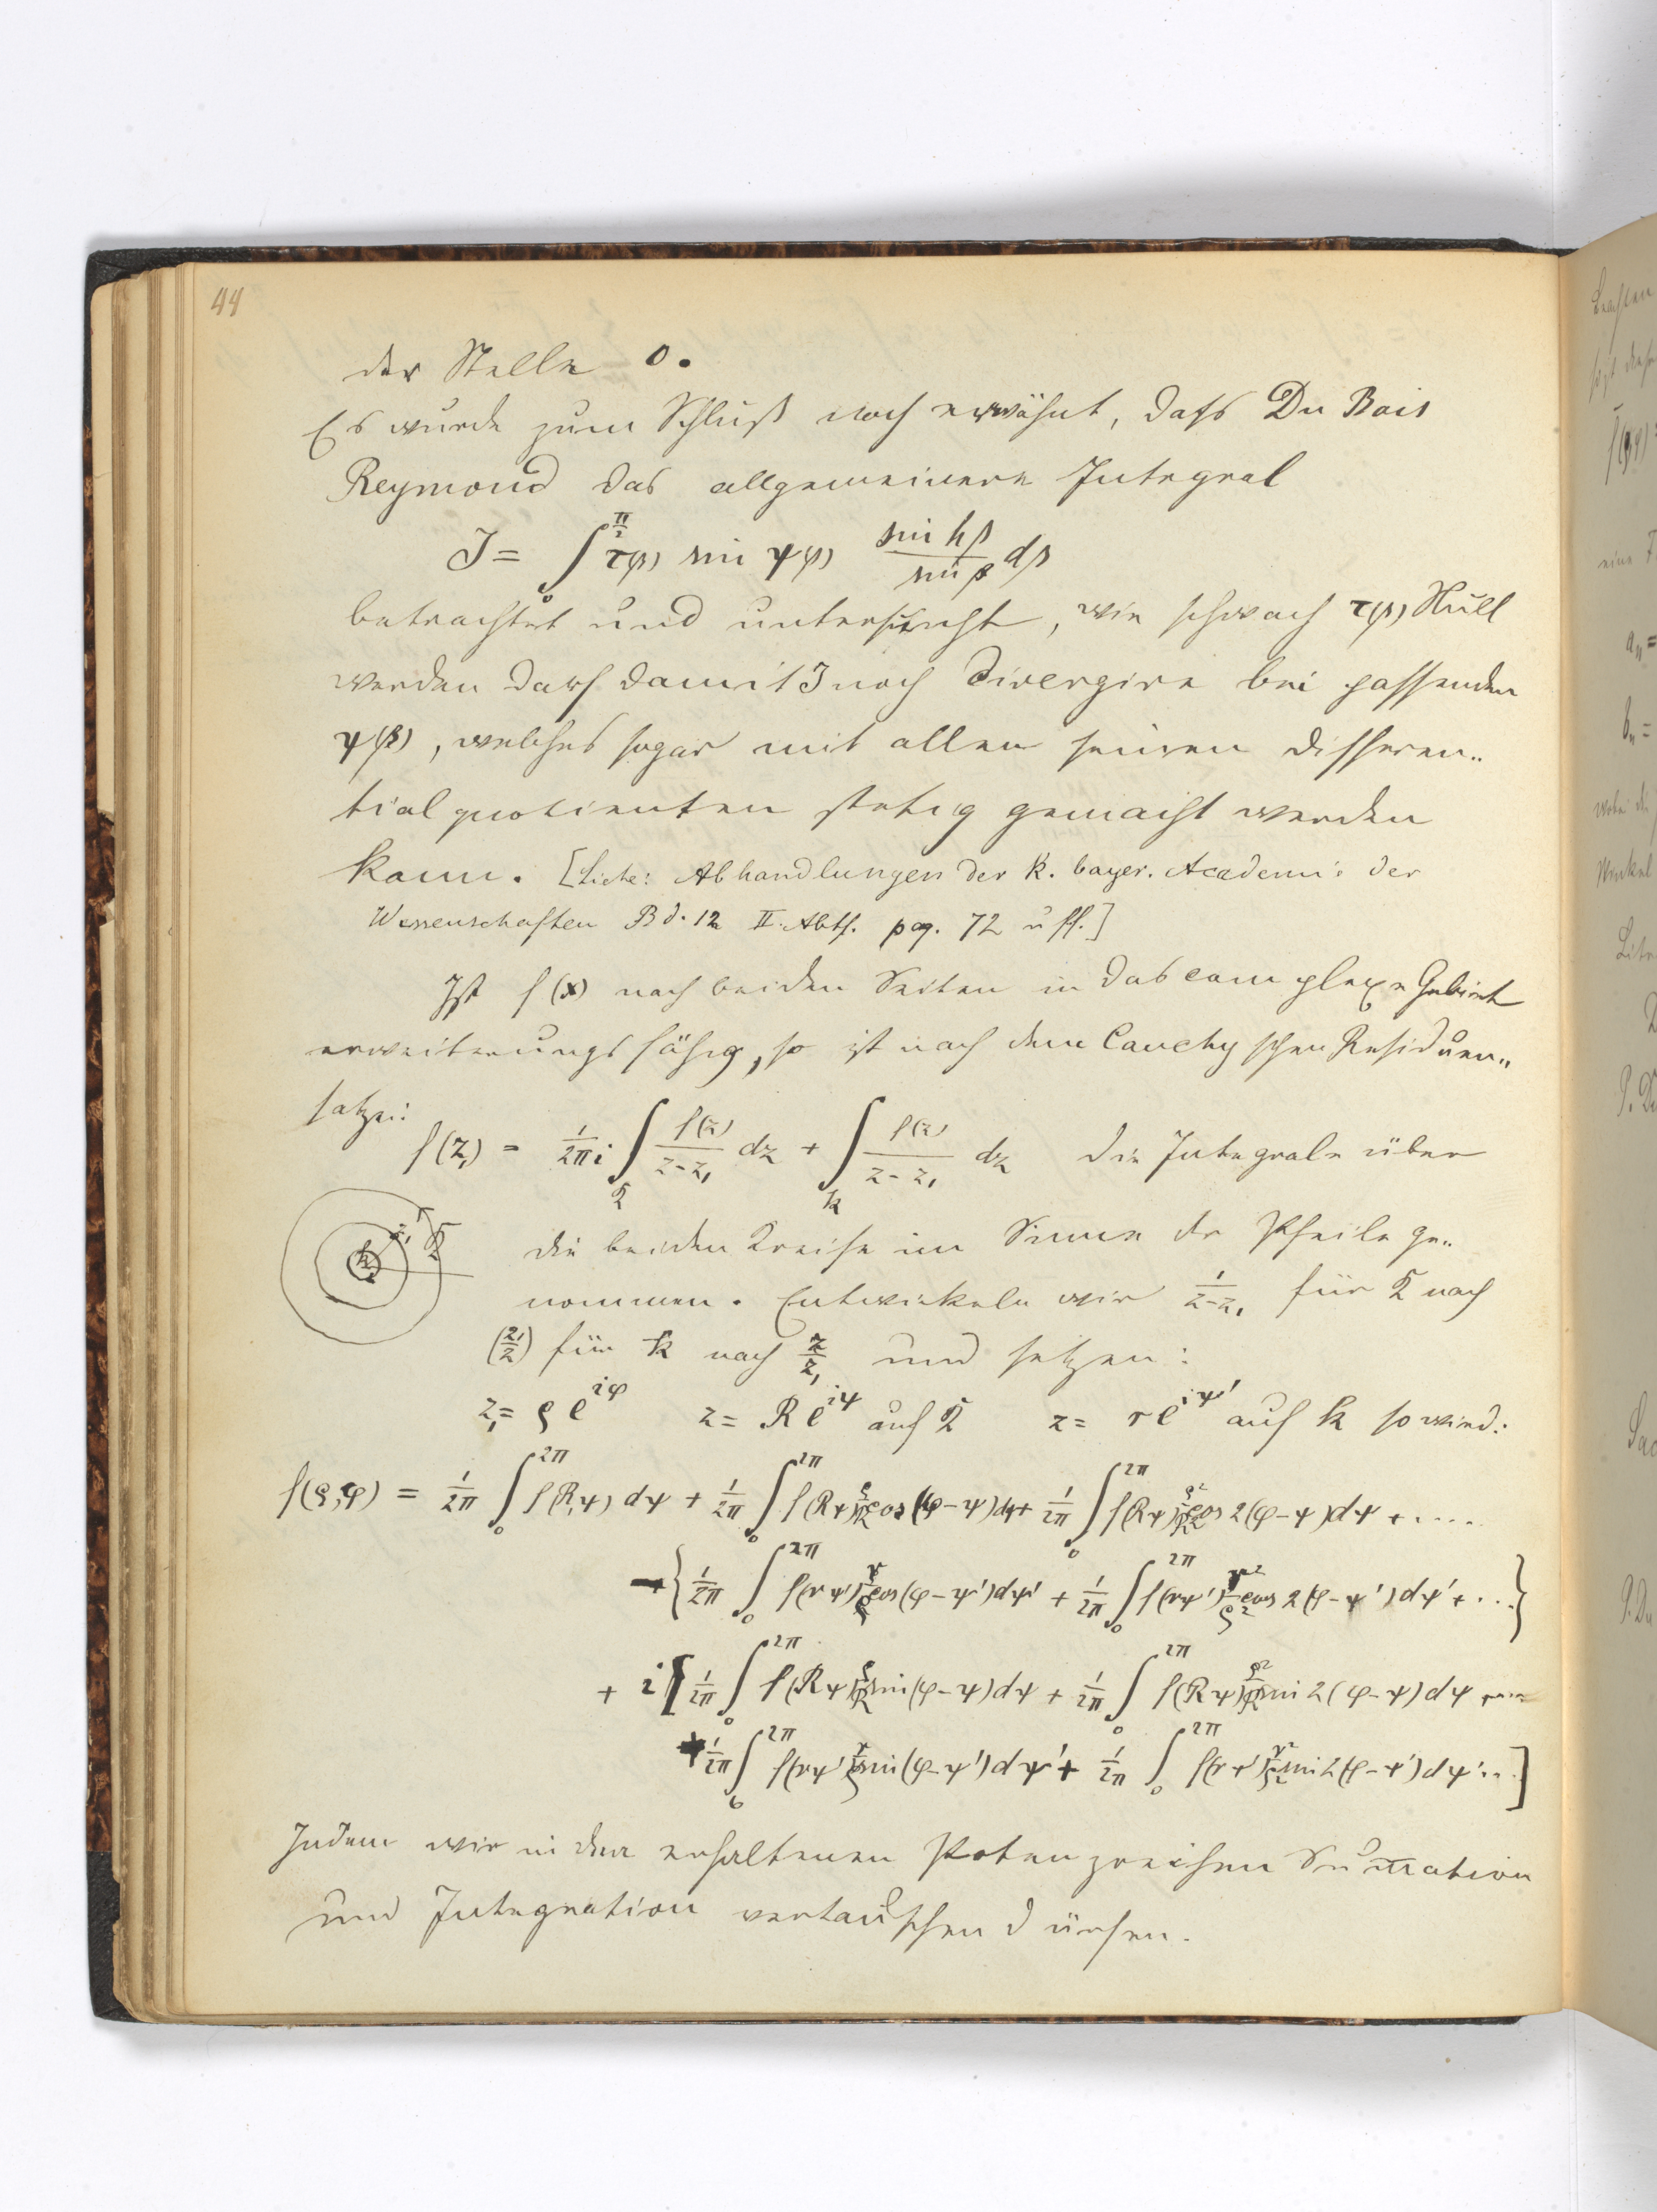 44
der Stelle 0.
Es wurde zum Schluß noch erwähnt, daſs Du Bois
Reymond das allgemeinere Integral
J = ∫₀^{π/2} τ(β) sin ψ(β) (sin hβ / sin β) dβ
betrachtet und untersucht, wie schwach τ(β) Null
werden darf damit J noch divergire bei passenden
ψ(β), welches sogar mit allen seinen Differen„
tialquotienten stetig gemacht werden
kann. [Siehe: Abhandlungen der K. bayer. Academie der
Wissenschaften Bd. 12 II. Abth. pag. 72 u ff.]
Ist f(x) nach beiden Seiten in das complexe Gebiet
erweiterungsfähig, so ist nach dem Cauchy'schen Residuen„
satze:
f(z₁) = 1/2πi ∫_K f(z)/(z-z₁) dz + ∫_k f(z)/(z-z₁) dz die Integrale über
k z₁ K
die beiden Kreise im Sinne der Pfeile ge„
nommen. Entwickeln wir 1/(z-z₁) für K nach
(z₁/z) für k nach z/z₁ und setzen:
z₁ = ρ e^{iφ} z = R e^{iψ} auf K z = r e^{iψ'} auf k so wird:
f(ρ,φ) = 1/2π ∫₀^{2π} f(R,ψ) dψ + 1/2π ∫₀^{2π} f(Rψ) ρ/R cos(φ-ψ)dψ + 1/2π ∫₀^{2π} f(Rψ) ρ²/R² cos 2(φ-ψ)dψ + .....
+ {1/2π ∫₀^{2π} f(rψ') r/ρ cos(φ-ψ')dψ' + 1/2π ∫₀^{2π} f(rψ') r²/ρ² cos 2(φ-ψ')dψ' + ...}
+ i [1/2π ∫₀^{2π} f(Rψ) ρ/R sin(φ-ψ)dψ + 1/2π ∫₀^{2π} f(Rψ) ρ²/R² sin 2(φ-ψ)dψ + ...
+ 1/2π ∫₀^{2π} f(rψ') r/ρ sin(φ-ψ')dψ' + 1/2π ∫₀^{2π} f(rψ') r²/ρ² sin 2(φ-ψ')dψ' ...]
Indem wir in den erhaltenen Potenzreihen Sum̄ation
und Integration vertauschen dürfen.